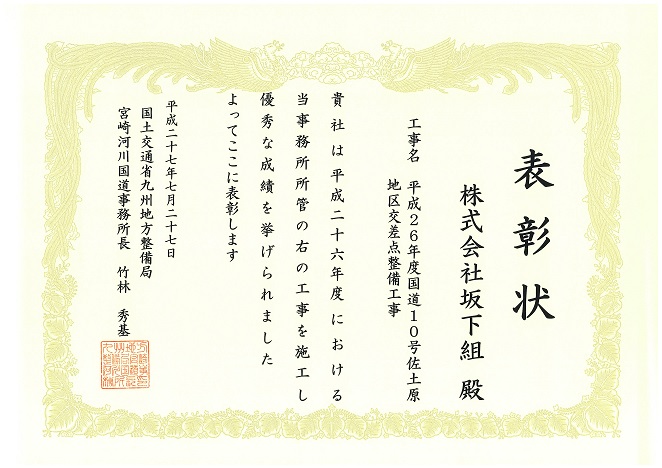 表彰状
株式会社坂下組 殿
工事名 平成26年度国道10号佐土原
地区交差点整備工事
貴社は平成二十六年度における
当事務所所管の右の工事を施工し
優秀な成績を挙げられました
よってここに表彰します
平成二十七年七月二十七日
国土交通省九州地方整備局
宮崎河川国道事務所長 竹林 秀基